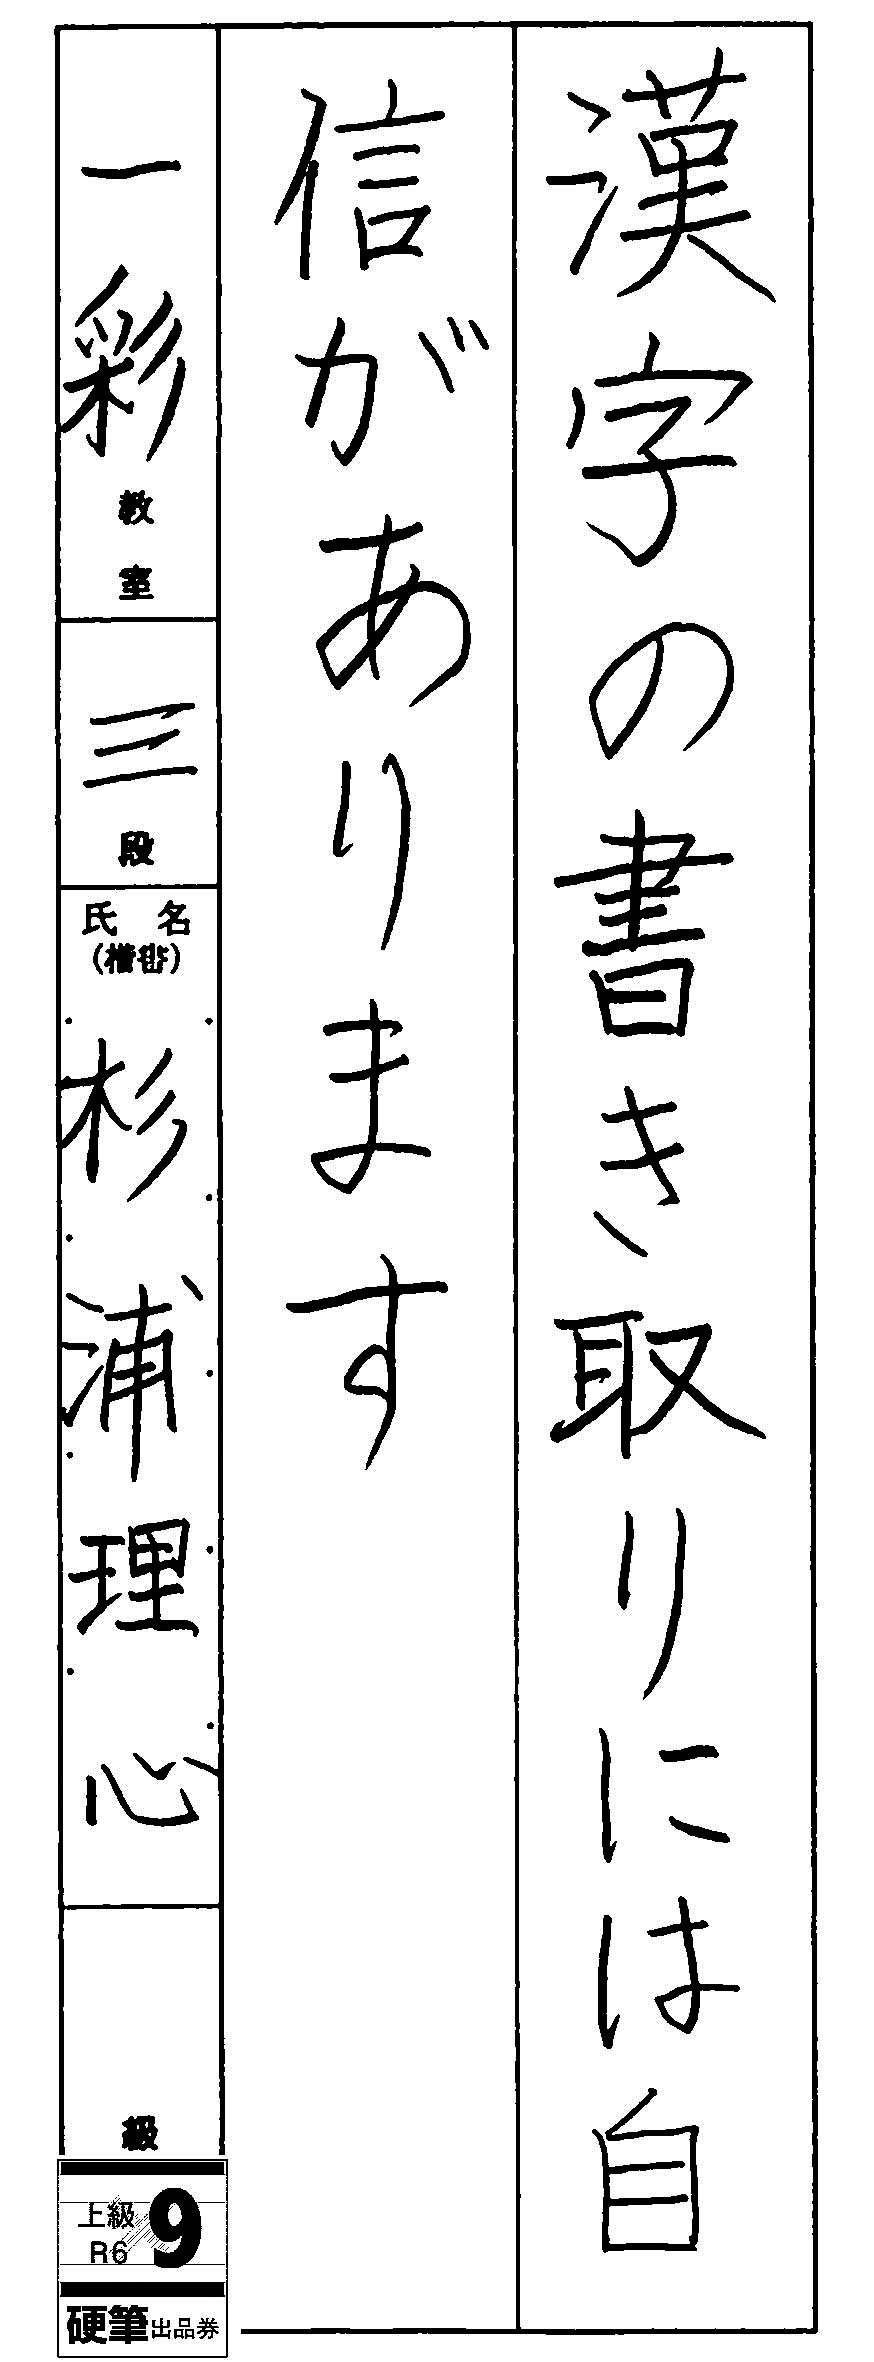 漢字の書き取りには自
信があります
一彩教室
三段
氏名
(楷書)
杉浦理心
級
上級
R6
9
硬筆出品券